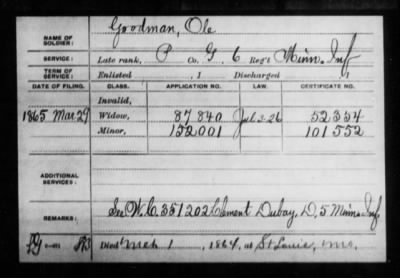 NAME OF SOLDIER: Goodman, Ole
SERVICE: Late rank, P Co. G, 6 Reg't Minn. Inf
TERM OF SERVICE: Enlisted , 1 Discharged , 1
DATE OF FILING. CLASS. APPLICATION NO. LAW. CERTIFICATE NO.
Invalid,
1865 Mar. 29 Widow, 87 840 52 354
Minor, 152 001 101 552
ADDITIONAL SERVICES:
REMARKS: See W.C. 351202 Clement Dubay, D, 5 Minn Inf
Died Mch 1 , 1864, at St Louis, Mo.